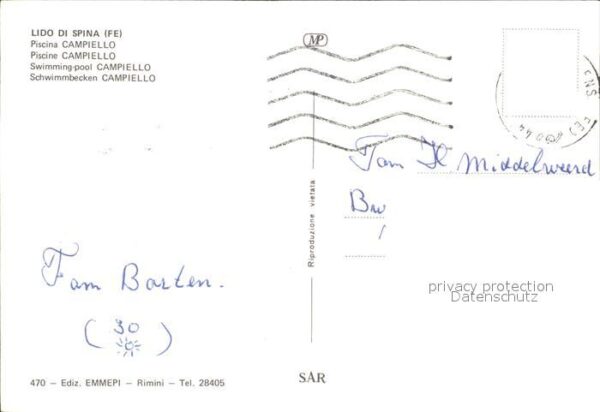 LIDO DI SPINA (FE)
Piscina CAMPIELLO
Piscine CAMPIELLO
Swimming-pool CAMPIELLO
Schwimmbecken CAMPIELLO
MP
Fam H Middelweerd
Fam Barten.
(30)
Riproduzione vietata
privacy protection
Datenschutz
470 – Ediz. EMMEPI – Rimini – Tel. 28405
SAR